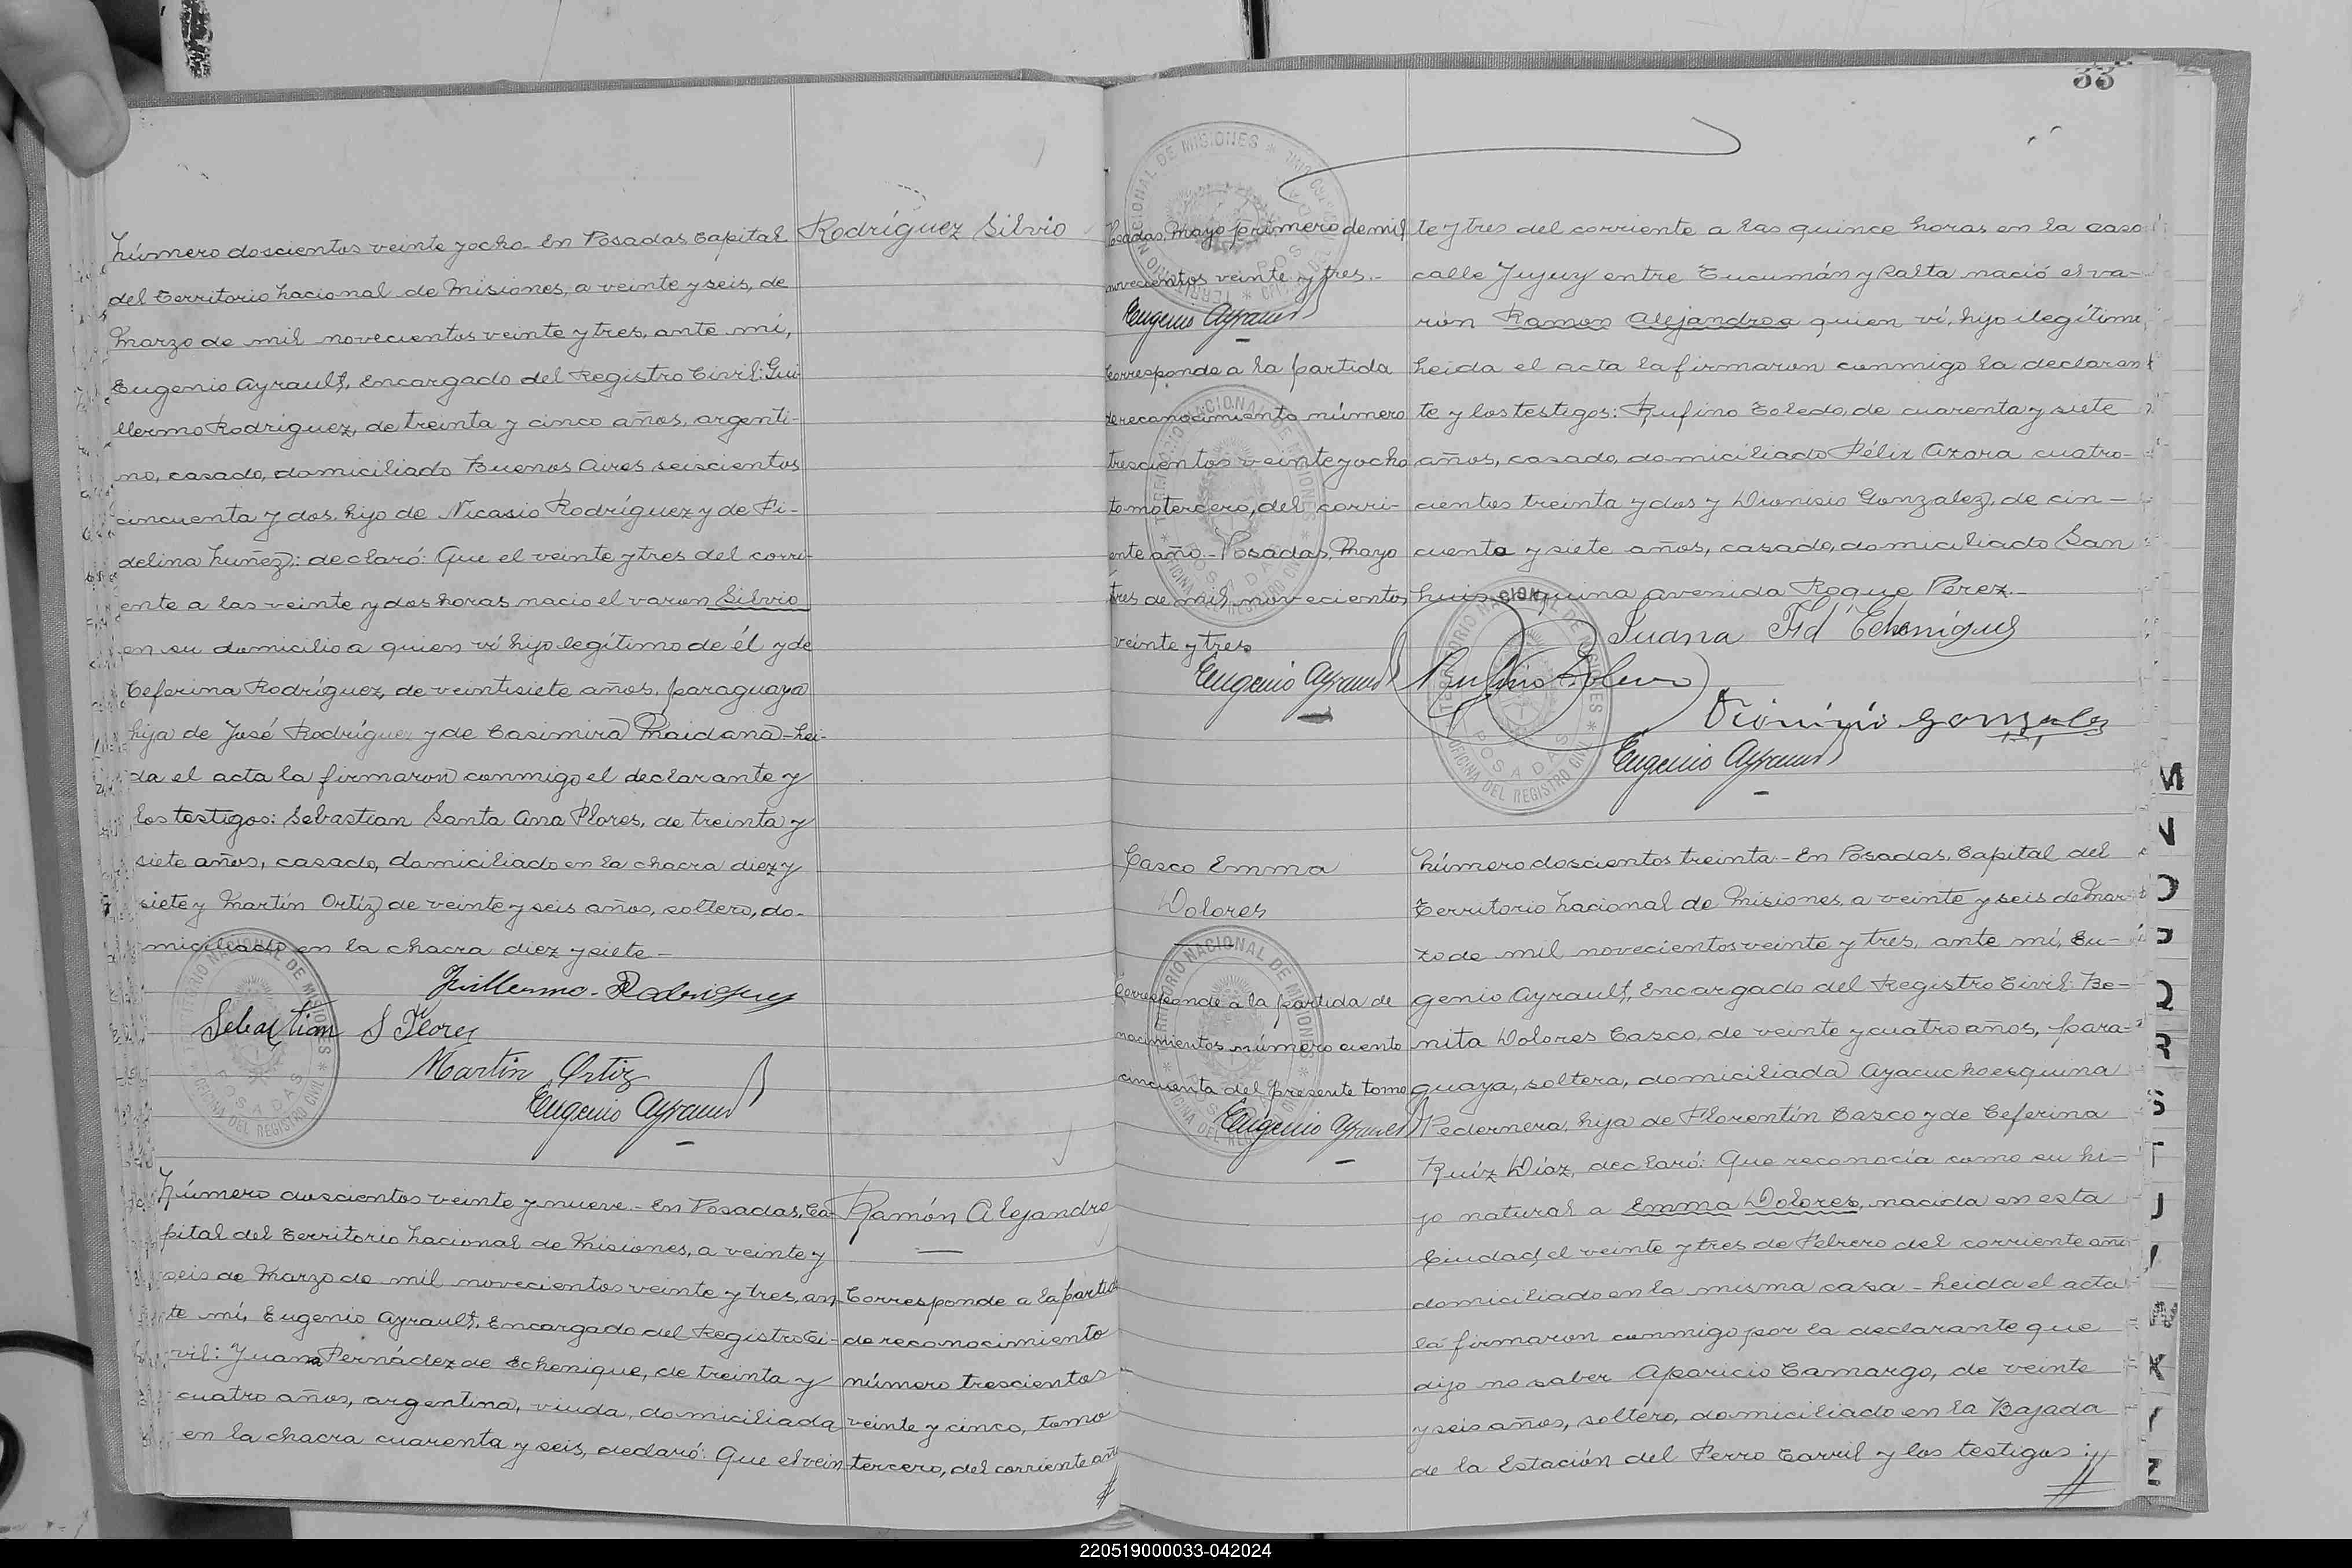 Número doscientos veinte y ocho. En Posadas, Capital
del Territorio Nacional de Misiones, a veinte y seis, de
Marzo de mil novecientos veinte y tres, ante mí,
Eugenio Ayrault, Encargado del Registro Civil: Gui-
llermo Rodriguez, de treinta y cinco años, argenti-
no, casado, domiciliado Buenos Aires seiscientos
cincuenta y dos, hijo de Nicasio Rodríguez y de Fi-
delina Nuñez: declaró: Que el veinte y tres del corri-
ente a las veinte y dos horas nacio el varon Silvio
en su domicilio a quien ví hijo legítimo de él y de
Ceferina Rodríguez, de veintisiete años, paraguaya
hija de José Rodríguez y de Casimira Maidana - Lei-
da el acta la firmaron conmigo el declarante y
los testigos: Sebastian Santa Ana Flores, de treinta y
siete años, casado, domiciliado en la chacra diez y
siete y Martín Ortíz de veinte y seis años, soltero, do-
miciliado en la chacra diez y siete -
Guillermo Rodriguez
Sebastian S Flores
Martin Ortiz
Eugenio Ayrault
Rodríguez Silvio
TERRITORIO NACIONAL DE MISIONES * OFICINA DEL REGISTRO CIVIL * POSADAS
Número doscientos veinte y nueve. - En Posadas, Ca-
pital del Territorio Nacional de Misiones, a veinte y
seis de Marzo de mil novecientos veinte y tres, an-
te mí, Eugenio Ayrault, Encargado del Registro Ci-
vil: Juana Fernádez de Echenique, de treinta y
cuatro años, argentina, viuda, domiciliada
en la chacra cuarenta y seis, declaró: Que el vein-
Ramón Alejandro
Corresponde a la partida
de reconocimiento
número trescientos
veinte y cinco, tomo
tercero, del corriente año
33
Posadas, Mayo primero de mil
novecientos veinte y tres.-
Eugenio Ayrault
Corresponde a la partida
de reconocimiento número
trescientos veinte y ocho
tomo tercero, del corri-
ente año - Posadas, Mayo
tres de mil novecientos
veinte y tres
Eugenio Ayrault
te y tres del corriente a las quince horas en la casa
calle Jujuy entre Tucumán y Salta nació el va-
rón Ramon Alejandro a quien ví, hijo ilegítimo
Leida el acta la firmaron conmigo la declaran
te y los testigos: Rufino Toledo, de cuarenta y siete
años, casado, domiciliado Félix Azara cuatro-
cientos treinta y dos y Dionisio Gonzalez, de cin-
cuenta y siete años, casado, domiciliado San
Luis esquina avenida Roque Pérez.-
Juana Fd Echenigue
Rufino Toledo
Dionisio Gonzalez
Eugenio Ayrault
TERRITORIO NACIONAL DE MISIONES * OFICINA DEL REGISTRO CIVIL * POSADAS
Casco Emma
Dolores
Corresponde a la partida de
nacimientos número ciento
cincuenta del presente tomo
Eugenio Ayrault
Número doscientos treinta - En Posadas, Capital del
Territorio Nacional de Misiones, a veinte y seis de Mar-
zo de mil novecientos veinte y tres, ante mí, Eu-
genio Ayrault, Encargado del Registro Civil, Be-
nita Dolores Casco, de veinte y cuatro años, para-
guaya, soltera, domiciliada Ayacucho esquina
Pedernera, hija de Florentín Casco y de Ceferina
Ruíz Díaz, declaró: Que reconocía como su hi-
jo natural a Emma Dolores, nacida en esta
Ciudad, el veinte y tres de Febrero del corriente año
domiciliado en la misma casa - Leida el acta
la firmaron conmigo por la declarante que
dijo no saber Aparicio Camargo, de veinte
y seis años, soltero, domiciliado en la Bajada
de la Estación del Ferro Carril y los testigos:
M
N
Q
R
S
T
Z
220519000033-042024